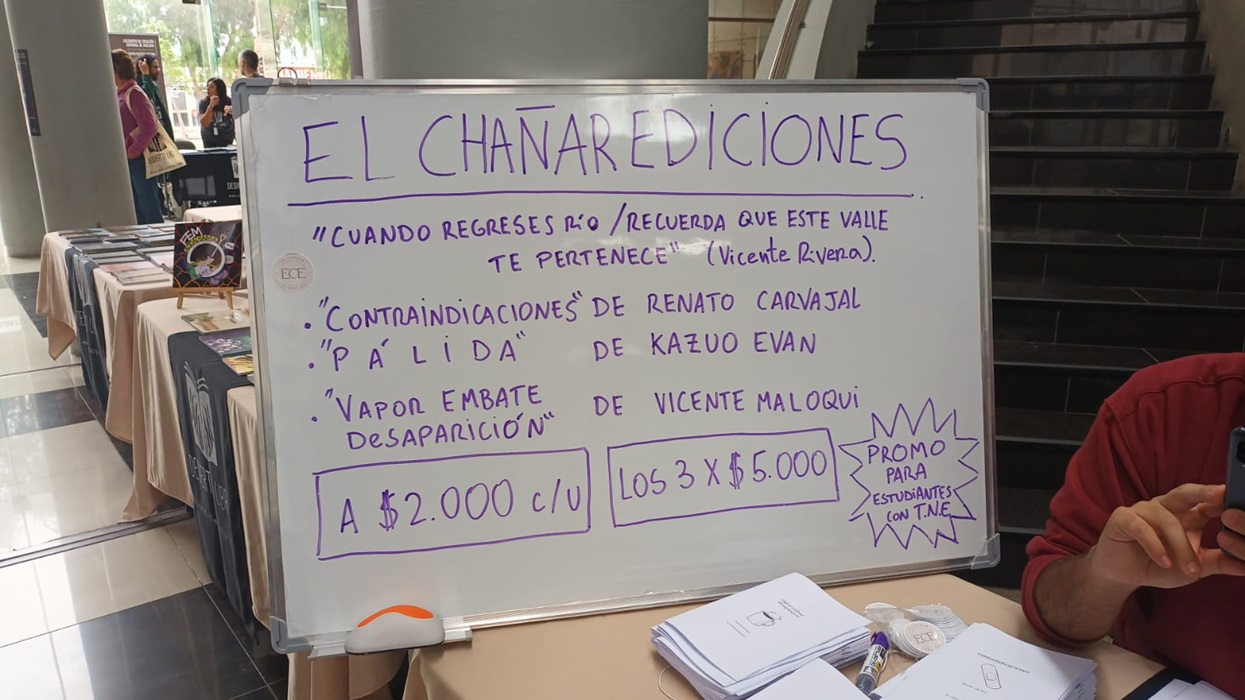 EL CHAÑAR EDICIONES
"CUANDO REGRESES RÍO / RECUERDA QUE ESTE VALLE
TE PERTENECE" (Vicente Rivera).
ECE
."CONTRAINDICACIONES" DE RENATO CARVAJAL
."PÁLIDA" DE KAZUO EVAN
."VAPOR EMBATE DE VICENTE MALOQUI
DESAPARICIÓN"
A $2.000 c/u
LOS 3 X $5.000
PROMO
PARA
ESTUDIANTES
CON T.N.E
FEM
ECE